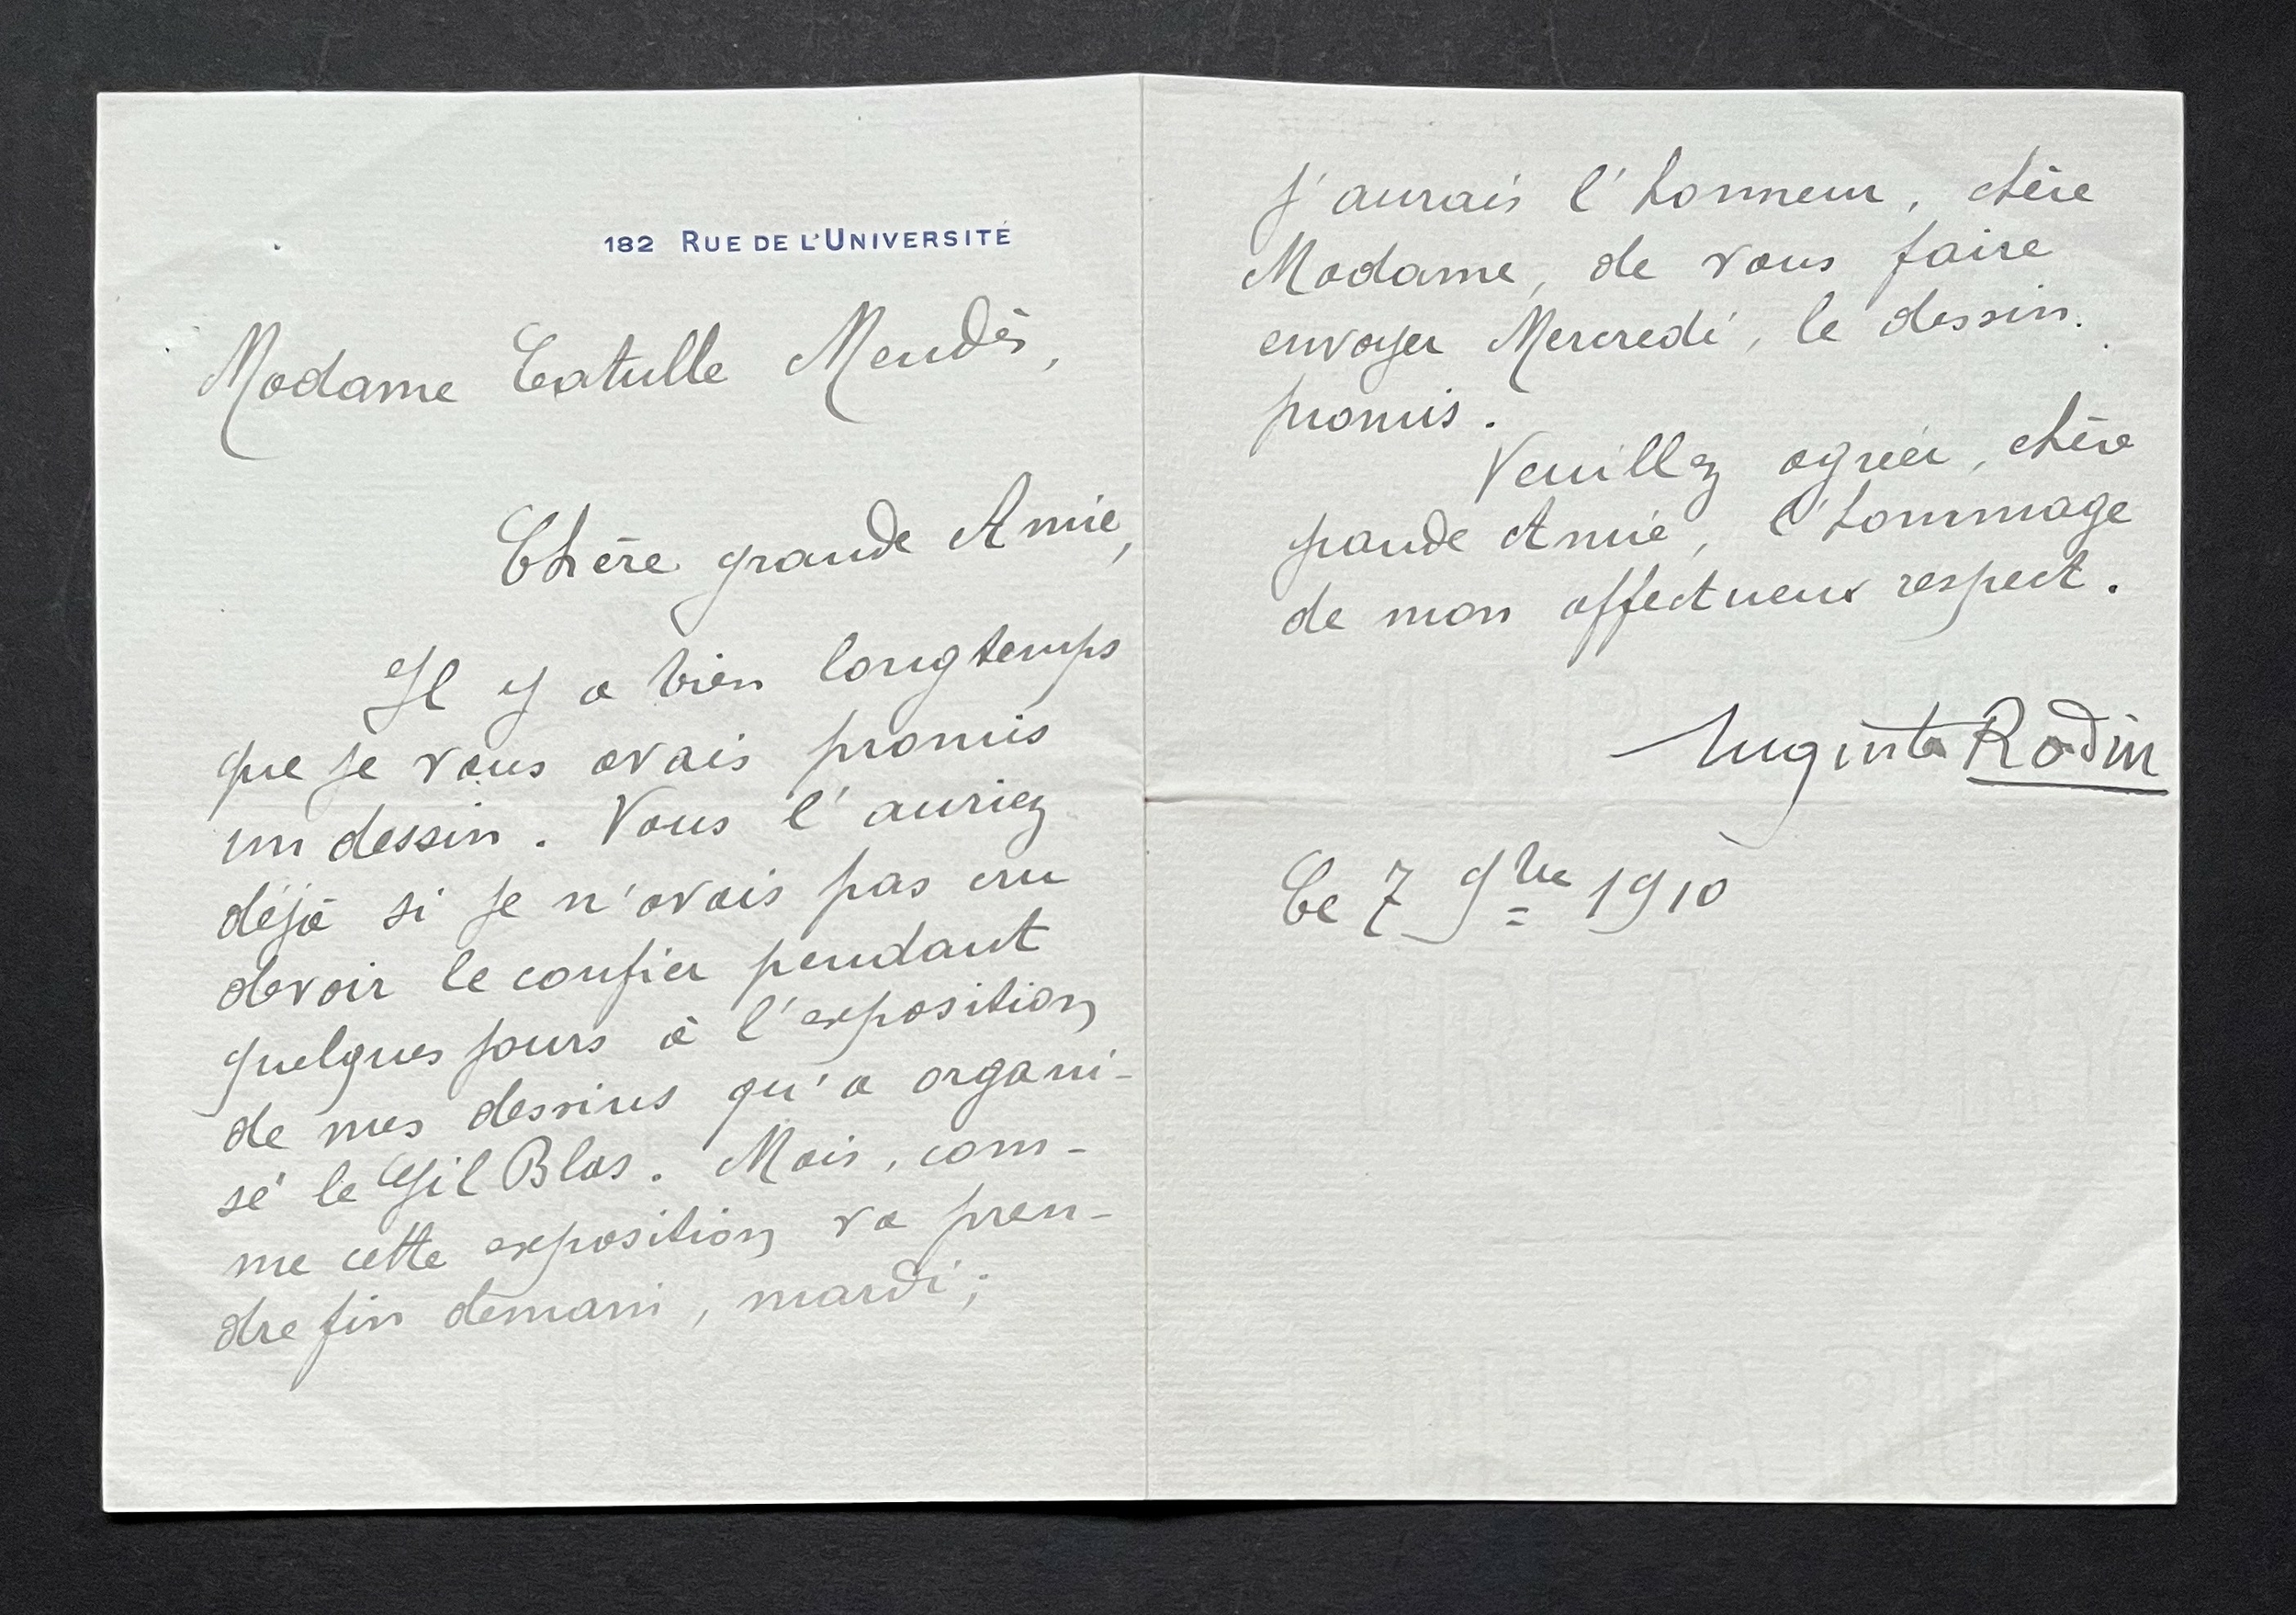 182 RUE DE L'UNIVERSITÉ
Madame Catulle Mendès,
Chère grande Amie,
Il y a bien longtemps
que je vous avais promis
un dessin. Vous l'auriez
déjà si je n'avais pas cru
devoir le confier pendant
quelques jours à l'exposition
de mes dessins qu'a organi-
sé le Gil Blas. Mais, com-
me cette exposition va pren-
dre fin demain, mardi;
j'aurais l'honneur, chère
Madame, de vous faire
envoyer Mercredi, le dessin
promis.
Veuillez agréer, chère
grande Amie, l'hommage
de mon affectueux respect.
Auguste Rodin
Ce 7 9bre 1910